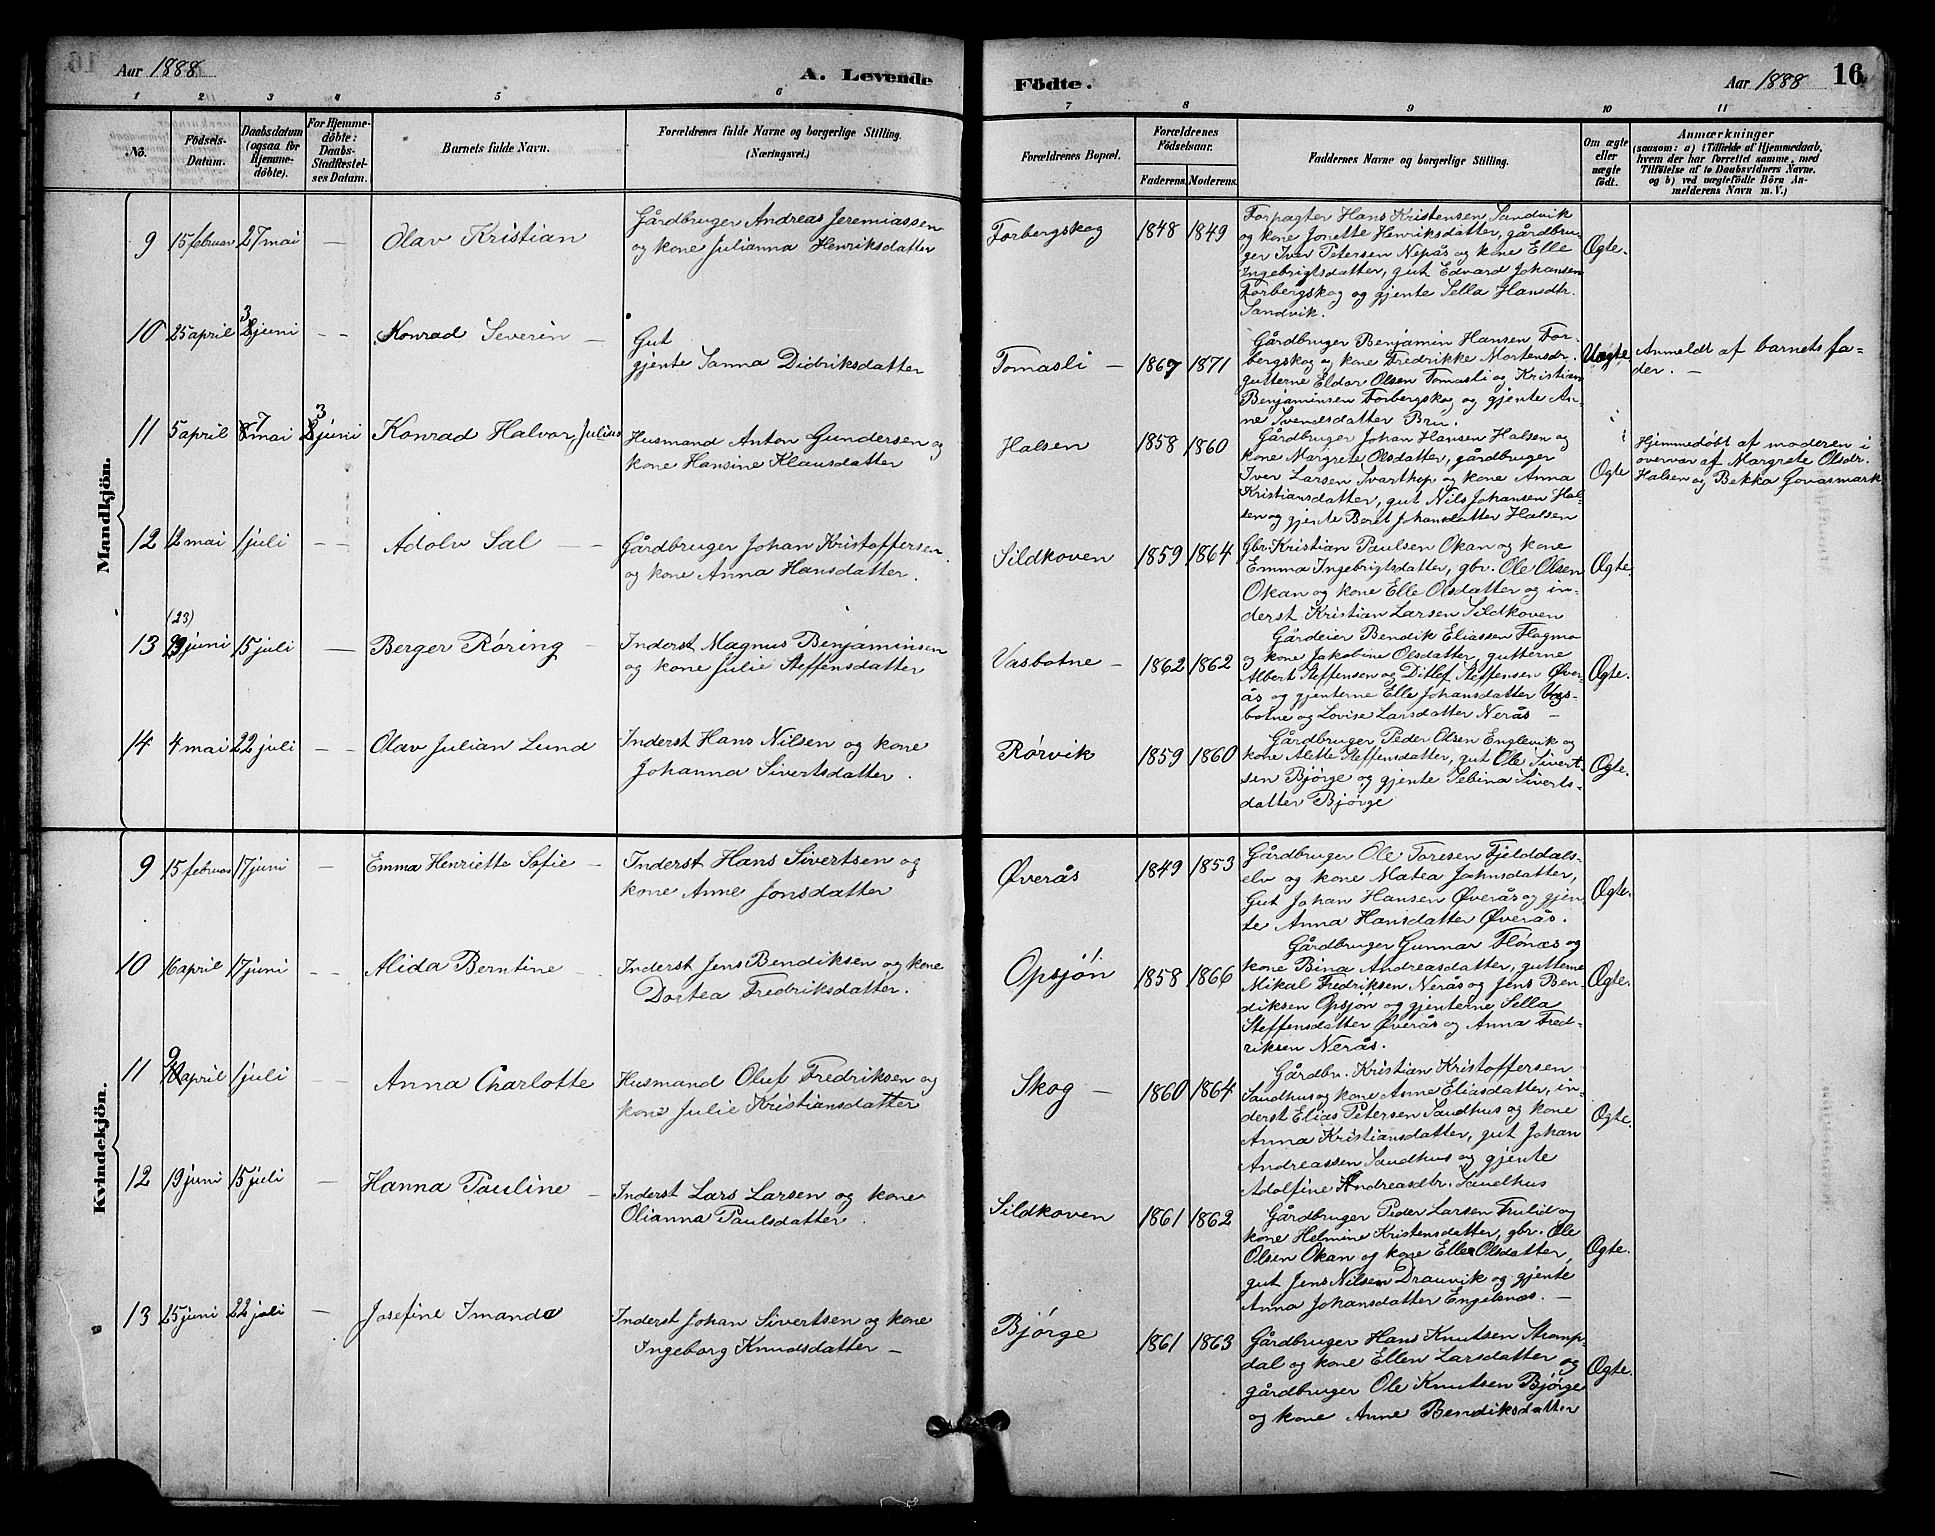 Aar 1888
A. Levende
Födte.
Aar 1888
16
1 2 3 4 5 6 7 8 9 10 11
No.
Födsels-
Datum.
Daabsdatum
(ogsaa for
Hjemme-
döbte).
For Hjemme-
döbte:
Daabs-
Stadfæstel-
ses Datum.
Barnets fulde Navn.
Forældrenes fulde Navne og borgerlige Stilling.
(Næringsvei.)
Forældrenes Bopæl.
Forældrenes
Födselsaar.
Faderens. Moderens.
Faddernes Navne og borgerlige Stilling.
Om ægte
eller
uægte
födt.
Anmærkninger
(saasom: a) i Tilfælde af Hjemmedaab,
hvem der har forrettet samme, med
Tilföielse af to Daabsvidners Navne.
og b) ved uægtefödte Börn An-
melderens Navn m. V.)
Mandkjön.
9 15 februar 27 mai — Olav Kristian
Gårdbruger Andreas Jeremiassen
og kone Julianna Henriksdatter
Forbergskog 1848 1849
Forpagter Hans Kristensen Sandvik
og kone Jonette Henriksdatter, gårdbru-
ger Iver Petersen Nepås og kone Elle
Ingebrigtsdatter, gut Edvard Johansen
Forbergskog og gjente Sella Hansdtr.
Sandvik.
Ægte.
10 25 april 3 juni - - Konrad Severin —
Gut
gjente Sanna Didriksdatter
Tomasli — 1867 1871
Gårdbruger Benjamin Hansen For-
bergskog og kone Fredrikke Mortensdr.
gutterne Eldor Olsen Tomasli og Kristian
Benjaminsen Forbergskog og gjente An-
ne Svendsdatter Bru.
Uægte.
Anmeldt af barnets fa-
der. —
11 5 april 7 mai 3 juni Konrad Halvor Julius
Husmand Anton Gundersen og
kone Hansine Klausdatter
Halsen 1858 1860
Gårdbruger Johan Hansen Halsen og
kone Margrete Olsdatter, gårdbruger
Iver Larsen Svarthop og kone Anna
Kristiansdatter, gut Nils Johansen Hal-
sen og gjente Beret Johansdatter Halsen
Ægte
Hjemmedøbt af moderen i
overvær af Margrete Olsdr.
Halsen og Bekka Govasmark
12 12 mai 1 juli - - Adolv Sal — —
Gårdbruger Johan Kristoffersen
og kone Anna Hansdatter.
Sildkoven 1859 1864
Gbr. Kristian Paulsen Okan og kone
Emma Ingebrigtsdatter, gbr. Ole Olsen
Okan og kone Elle Olsdatter og in-
derst Kristian Larsen Sildkoven
Ægte.
(23)
13 juni 15 juli — Berger Røring —
Inderst Magnus Benjaminsen
og kone Julie Steffensdatter
Vasbotne — 1862 1862
Gårdeier Bendik Eliassen Flagmo
og kone Jakobine Olsdatter, gutterne
Albert Steffensen og Ditlef Steffensen Øver-
ås og gjenterne Elle Johansdatter Vas-
botne og Lovise Larsdatter Nerås —
Ægte.
14 4 mai 22 juli - - Olav Julian Lund
Inderst Hans Nilsen og kone
Johanna Sivertsdatter.
Rørvik 1859 1860
Gårdbruger Peder Olsen Englevik og
kone Alette Steffensdatter, gut Ole Sivert-
sen Bjørge og gjente Sebina Siverts-
datter Bjørge
Ægte.
Kvindekjön.
9 15 februar 17 juni — Emma Henriette Sofie —
Inderst Hans Sivertsen og
kone Anne Jonsdatter
Øverås 1849 1853
Gårdbruger Ole Toresen Fjelddals-
elv og kone Matea Johnsdatter,
Gut Johan Hansen Øverås og gjen-
te Anna Hansdatter Øverås.
Ægte.
10 16 april 17 juni - - Alida Berntine —
Inderst Jens Bendiksen og kone
Dortea Fredriksdatter.
Opsjøn 1858 1866
Gårdbruger Gunnar Flønæs og
kone Bina Andreasdatter, gutterne
Mikal Fredriksen Nerås og Jens Ben-
diksen Opsjøn og gjenterne Sella
Steffensdatter Øverås og Anna Fred-
riksen Nerås.
Ægte.
11 9 april 1 juli — Anna Charlotte
Husmand Oluf Fredriksen og
kone Julie Kristiansdatter
Skog — 1860 1864
Gårdbr. Kristian Kristoffersen
Sandhus og kone Anne Eliasdatter, in-
derst Elias Petersen Sandhus og kone
Anna Kristiansdatter, gut Johan
Andreassen Sandhus og gjente
Adolfine Andreasdtr. Sandhus
Ægte.
12 19 juni 15 juli — Hanna Pauline —
Inderst Lars Larsen og kone
Olianna Paulsdatter.
Sildkoven 1861 1862
Gårdbruger Peder Larsen Frulid og
kone Helmine Kristensdatter, gbr. Ole
Olsen Okan og kone Elle Olsdatter,
gut Jens Nilsen Drauvik og gjente
Anna Johansdatter Engelsnæs. —
Ægte.
13 25 juni 22 juli — Josefine Imanda
Inderst Johan Sivertsen og kone
Ingeborg Knudsdatter —
Bjørge 1861 1863
Gårdbruger Hans Knutsen Stromp-
dal og kone Ellen Larsdatter og
gårdbruger Ole Knutsen Bjørge
og kone Anne Bendiksdatter
Ægte.